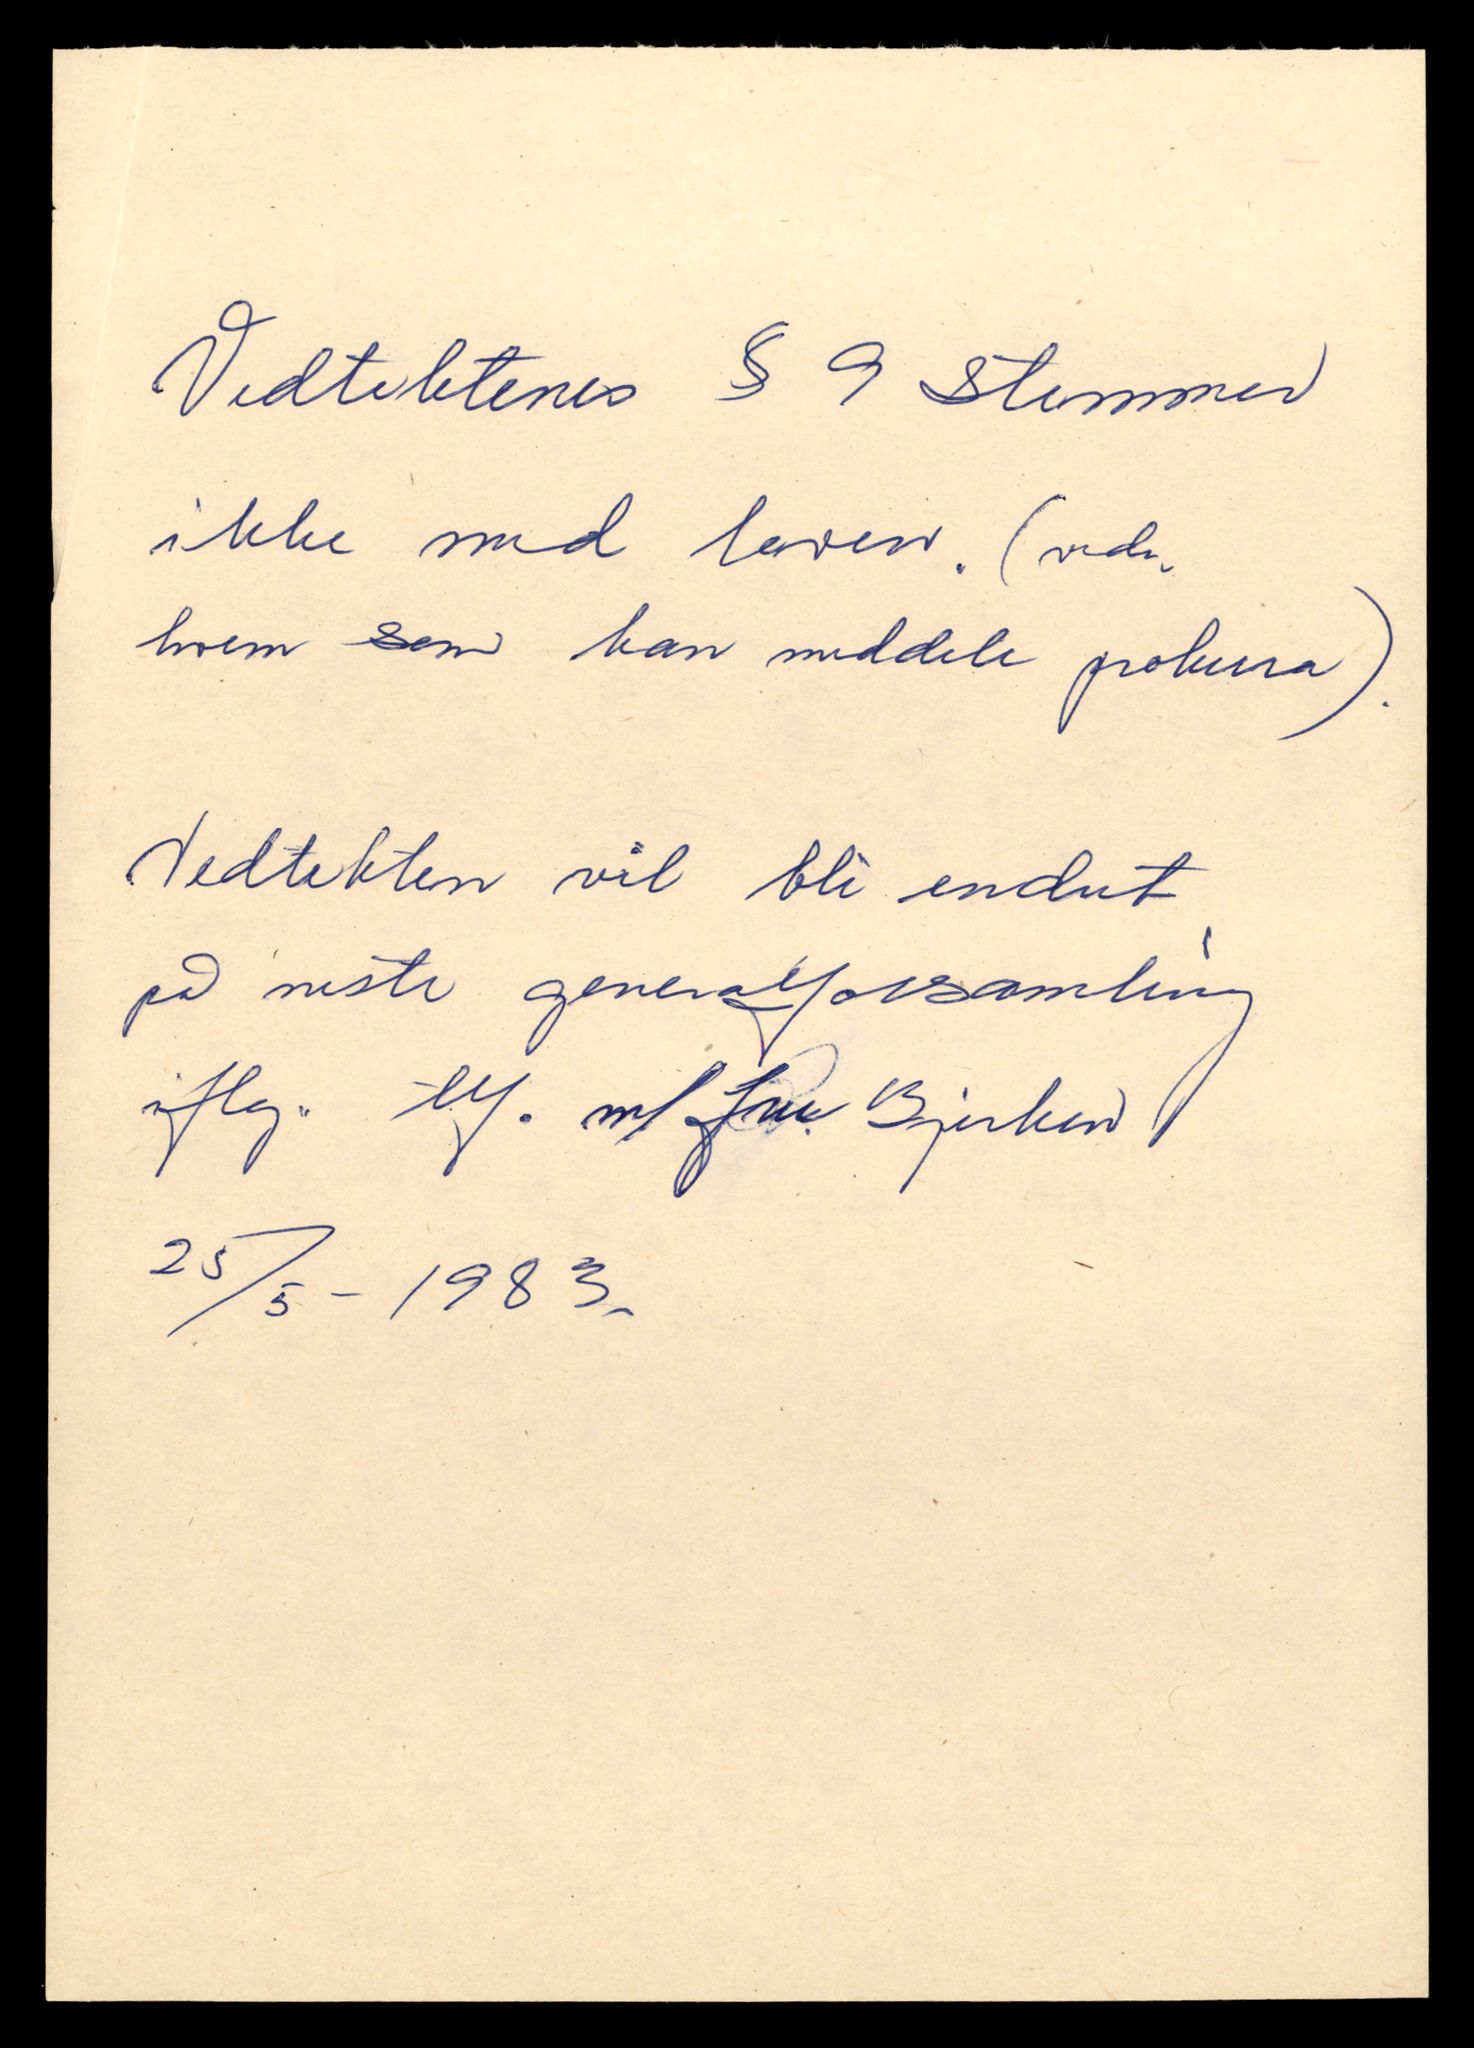 Vedtektenes § 9 stemmer
ikke med loven. (vedr.
hvem som kan meddele prokura).
Vedtekten vil bli endret
på neste generalforsamling
iflg. tlf. m/ fru Bjerken
25/5 - 1983.